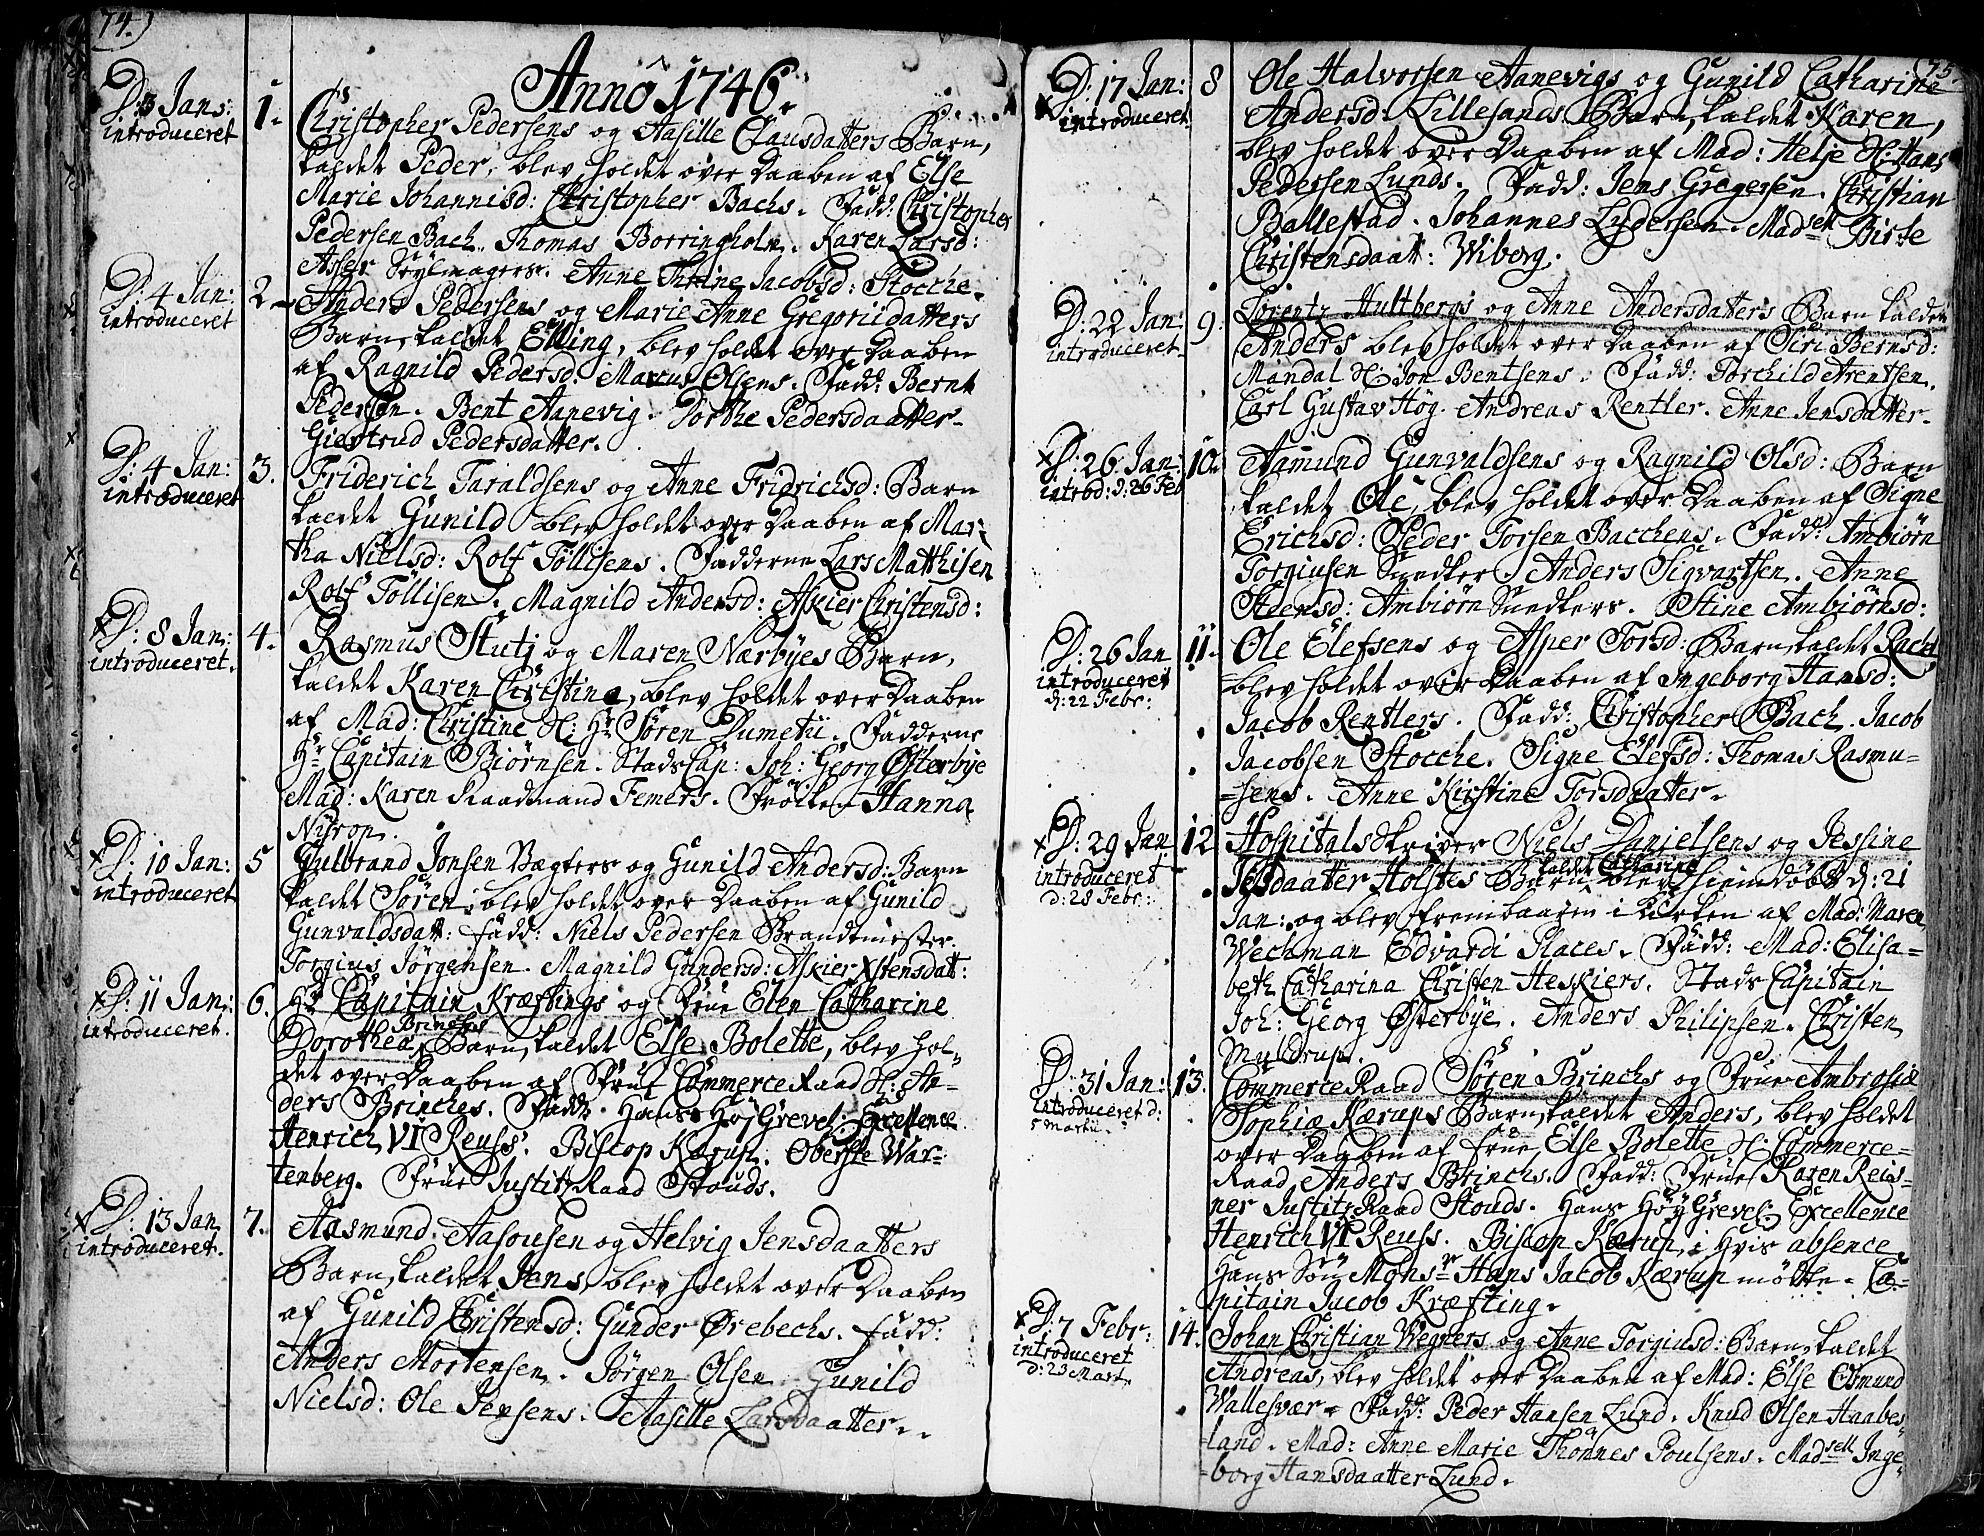 74.
Anno 1746.
D: 3 Jan:
introduceret
1.
Christopher Pedersens og Aasille Clausdatters Barn,
kaldet Peder, blev holdet over Daaben af Else
Marie Johannisd: Christopher Bachs. Fadd: Christopher
Pedersen Bach. Thomas Borringholm. Karen Larsd:
Asser Seylmagers. Anne Thrine Jacobsd: Stocche.
D: 4 Jan:
introduceret
2.
Anders Pedersens og Marie Anne Gregoriidatters
Barn, kaldet Elling, blev holdet over Daaben
af Ragnild Pedersd: Marcus Olsens. Fadd: Bernt
Pedersen. Bent Aanevig. Dorthe Pedersdaatter.
Giertrud Pedersdatter.
D: 4 Jan:
introduceret
3.
Friderich Taraldsens og Anne Fridrichsd: Barn
kaldet Gunild blev holdet over Daaben af Mar-
tha Nielsd: Rolf Töllisens. Fadderne Lars Matthisen
Rolf Töllisen. Magnild Andersd: Askier Christensd:
D: 8 Jan:
introduceret.
4.
Rasmus Stutj og Maren Nærbyes Barn,
kaldet Karen Christine, blev holdet over Daaben
af Mad: Christine Sl: Hr Sören Dumetii. Fadderne
Hr Capitain Biörnsen. Stads Cap: Joh: Georg Østerbye
Mad: Karen Raadmand Femers. Fröiken Hanna
Nyrop.
D: 10 Jan:
introduceret
5
Gulbrand Jonsen Vægters og Gunild Andersd: Barn
kaldet Sören, blev holdet over Daaben af Gunild
Gunvaldsdatt: fadd: Niels Pedersen Brandtmester.
Torgius Jörgensen. Magnild Gundersd: Askier Xstensdat:
D: 11 Jan:
introduceret.
6.
Hr Capitain Kræftings og Frue Elen Catharine
Dorothea Brinchs Barn, kaldet Else Bolette, blev hol-
det over Daaben af Frue Commerce Raad Sl: An-
ders Brinches. Fadd: Hans Höj Grevel: Excellence
Henrich VI Reuss. Biscop Kærup. Oberste War-
tenberg. Frue Justitz Raad Stouds.
D: 13 Jan
introduceret.
7.
Aasmund Aasousen og Helvig Jensdaatters
Barn, kaldet Jens, blev holdet over Daaben
af Gunild Christensd: Gunder Ørebechs. fadd:
Anders Mortensen. Jörgen Olsen. Gunild
Nielsd: Ole Jensens. Aasille Larsdaatter.
75.
D: 17 Jan:
introduceret
8
Ole Halvorsen Aanevigs og Gunild Catharine
Andersd: Lillesands Barn, kaldet Karen,
blev holdet over Daaben af Mad: Helje Sl: Hans
Pedersen Lunds. Fadd: Jens Gregersen. Christian
Ballestad. Johannes Lydersen. Madsell Birte
Christensdaatt: Wiborg.
D: 22 Jan:
introduceret
9.
Lorentz Hultbergs og Anne Andersdatters Barn kaldet
Anders blev holdet over Daaben af Siri Bernsd:
Mandal Sl: Jon Bentsens. Fadd: Torchild Arentsen.
Carl Gustav Hög. Andreas Rentler. Anne Jensdatter.
D: 26 Jan:
introd: d: 26 Feb
10.
Aamund Gunvaldsens og Ragnild Olsd: Barn
kaldet Ole, blev holdet over Daaben af Signe
Erichsd: Peder Torsen Bacchens. Fadd: Ambiörn
Torgiusen Snedker. Anders Sigvartsen. Anne
Steensd: Ambiörn Snedkers. Stine Ambiörnsd:
D: 26 Jan
introduceret
d: 22 Febr:
11.
Ole Elefsens og Asper Torsd: Barn, kaldet Rachel
blev holdet over Daaben af Ingeborg Hansd:
Jacob Rentlers. Fadd: Christopher Bach. Jacob
Jacobsen Stocche. Signe Elefsd: Thomas Rasmu-
sens. Anne Kirstine Torsdaatter.
D: 29 Jan
introduceret
d: 28 Febr:
12
Hospitalsskriver Niels Danielsens og Jessine
Jessdaatter Holstes Barn kaldet Catharine blev hiemdöbt d: 21
Jan: og blev frembaaren i Kirken af Mad: Maren
Wechman Edvardi Places. Fadd: Mad: Elisa-
beth Catharina Christen Heskiers. Stads Capitain
Joh: Georg Østerbye. Anders Philipsen. Christen
Muldrup.
D: 31 Jan:
introduceret d:
5 Martii.
13.
Commerce Raad Sören Brinchs og Frue Ambrosie
Sophia Kærups Barn, kaldet Anders, blev holdet
over Daaben af frue Else Bolette Sl: Commerce-
Raad Anders Brinchs. Fadd: Frue Karen Reis-
ner Justitz Raad Stouds. Hans Höy Grevel: Excellence
Henrich VI Reuss. Biscop Kærup, i hvis absence
hans Sön Monsr Hans Jacob Kærup mötte. Ca-
pitain Jacob Kræfting.
D: 7 Febr:
introduceret
d: 23 Mart.
14.
Johan Christian Wegners og Anne Torgiusd: Barn, kaldet
Andreas, blev holdet over Daaben af Mad: Else Osmund
Wallesvær. Fadd: Peder Hansen Lund. Knud Olsen Haabes-
land. Mad: Anne Marie Thönnes Poulsens. Madsell Inge-
borg Hansdaatter Lund.